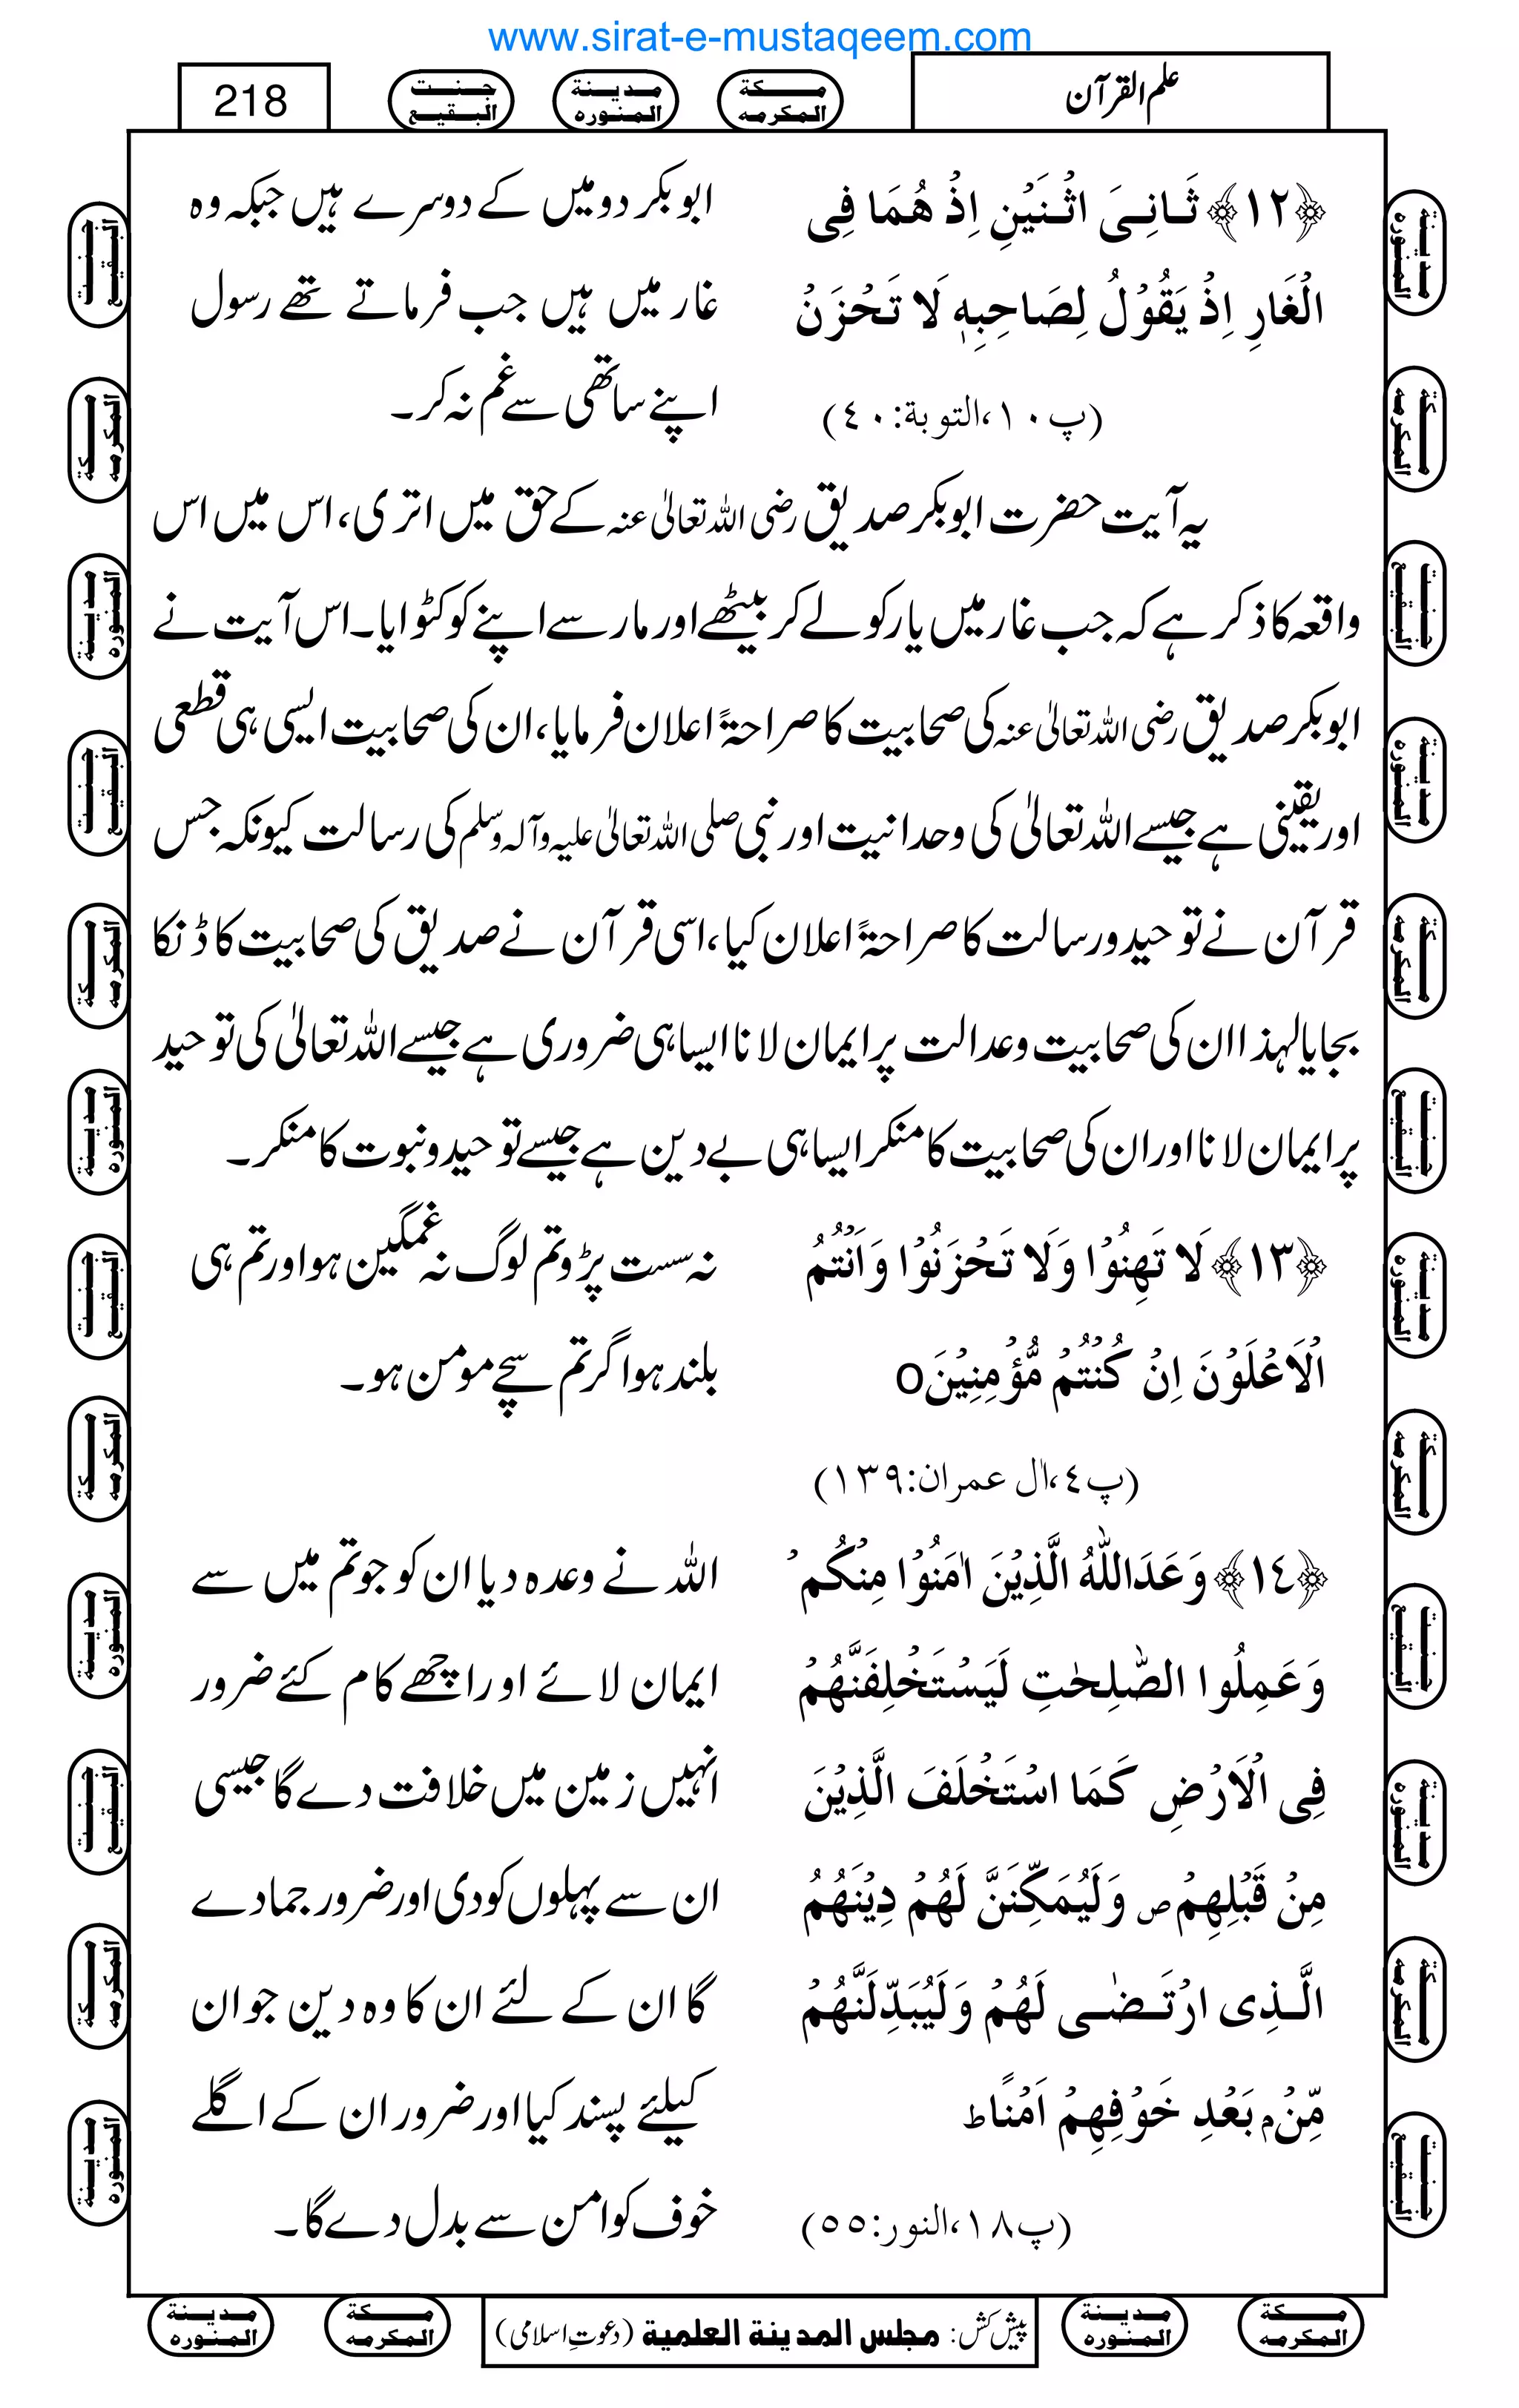 www.sirat-e-mustaqeem.com
علم القرآن
مکة المکرمه
مدینة المنوره
جنت البقیع
218
﴿١٢﴾ ثَانِیَ اثْنَیْنِ اِذْ هُمَا فِی
الْغَارِ اِذْ یَقُوْلُ لِصَاحِبِهٖ لَا تَحْزَنْ
(پ١٠،التوبة:٤٠)
ابو بکر دو میں کے دوسرے ہیں جبکہ وہ
غار میں ہیں جب فرماتے تھے رسول
اپنے ساتھی سے غم نہ کر۔
یہ آیت حضرت ابو بکر صدیق رضی اللہ تعالیٰ عنہ کے حق میں اتری، اس میں اس
واقعہ کا ذکر ہے کہ جب غار میں یار کو لے کر بیٹھے اور مار سے اپنے کو کٹوایا۔ اس آیت نے
ابو بکر صدیق رضی اللہ تعالیٰ عنہ کی صحابیت کا صراحۃً اعلان فرمایا، ان کی صحابیت ایسی ہی قطعی
اور یقینی ہے جیسے اللہ تعالیٰ کی وحدانیت اور نبی صلی اللہ تعالیٰ علیہ وآلہ وسلم کی رسالت کیونکہ جس
قرآن نے توحید ورسالت کا صراحۃً اعلان کیا، اسی قرآن نے صدیق کی صحابیت کا ڈنکا
بجایا لہذا ان کی صحابیت وعدالت پر ایمان لانا ایسا ہی ضروری ہے جیسے اللہ تعالیٰ کی توحید
پر ایمان لانا اور ان کی صحابیت کا منکر ایسا ہی بے دین ہے جیسے توحید ونبوت کا منکر۔
﴿١٣﴾ لَا تَهِنُوْا وَلَا تَحْزَنُوْا وَاَنْتُمُ
الْاَعْلَوْنَ اِنْ كُنْتُمْ مُّؤْمِنِیْنَo
(پ٤،اٰل عمران:١٣٩)
نہ سست پڑو تم لوگ نہ غمگین ہو اور تم ہی
بلند ہو اگر تم سچے مومن ہو۔
﴿١٤﴾ وَعَدَاللّٰهُ الَّذِیْنَ اٰمَنُوْا مِنْكُمْ
وَعَمِلُوا الصّٰلِحٰتِ لَیَسْتَخْلِفَنَّهُمْ
فِی الْاَرْضِ كَمَا اسْتَخْلَفَ الَّذِیْنَ
مِنْ قَبْلِهِمْ ص وَلَیُمَكِّنَنَّ لَهُمْ دِیْنَهُمُ
الَّذِی ارْتَضٰی لَهُمْ وَلَیُبَدِّلَنَّهُمْ
مِّنْۢ بَعْدِ خَوْفِهِمْ اَمْنًا ط
(پ١٨،النور:٥٥)
اللہ نے وعدہ دیا ان کو جو تم میں سے
ایمان لائے اور اچھے کام کئے ضرور
انہیں زمین میں خلافت دے گا جیسی
ان سے پہلوں کو دی اور ضرور جما دے
گا ان کے لئے ان کا وہ دین جو ان
کیلئے پسند کیا اور ضرور ان کے اگلے
خوف کو امن سے بدل دے گا۔
پیش کش: مجلس المدینة العلمیة (دعوتِ اسلامی)